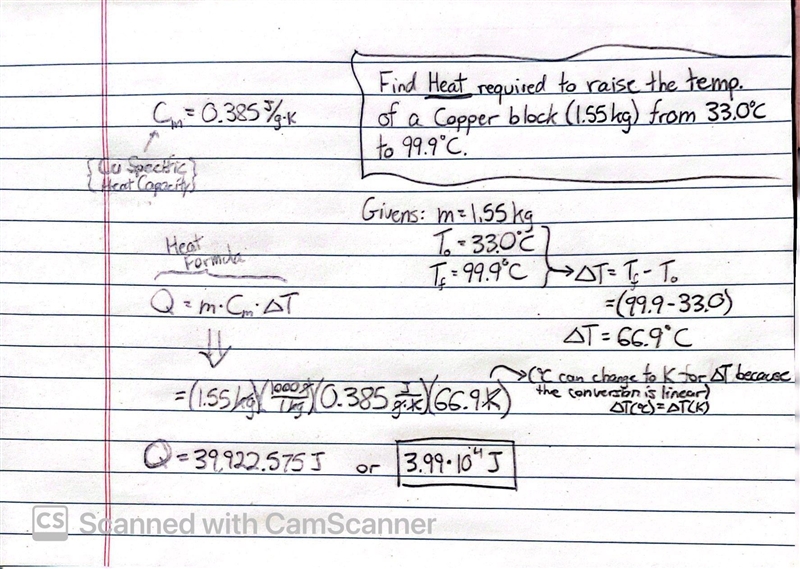 Find Heat required to raise the temp.
of a Copper block (1.55 kg) from 33.0°C
to 99.9°C.
Cm = 0.385 J/g·K
{Cu Specific
Heat Capacity}
Givens: m = 1.55 kg
T₀ = 33.0°C
T_f = 99.9°C
→ ΔT = T_f - T₀
= (99.9 - 33.0)
ΔT = 66.9°C
Heat
Formula
Q = m·Cm·ΔT
⇓
= (1.55 kg)(1000 g/1 kg)(0.385 J/g·K)(66.9 K)
→ (°C can change to K for ΔT because
the conversion is linear)
ΔT(°C) = ΔT(K)
Q = 39,922.575 J or 3.99·10⁴ J
CS Scanned with CamScanner